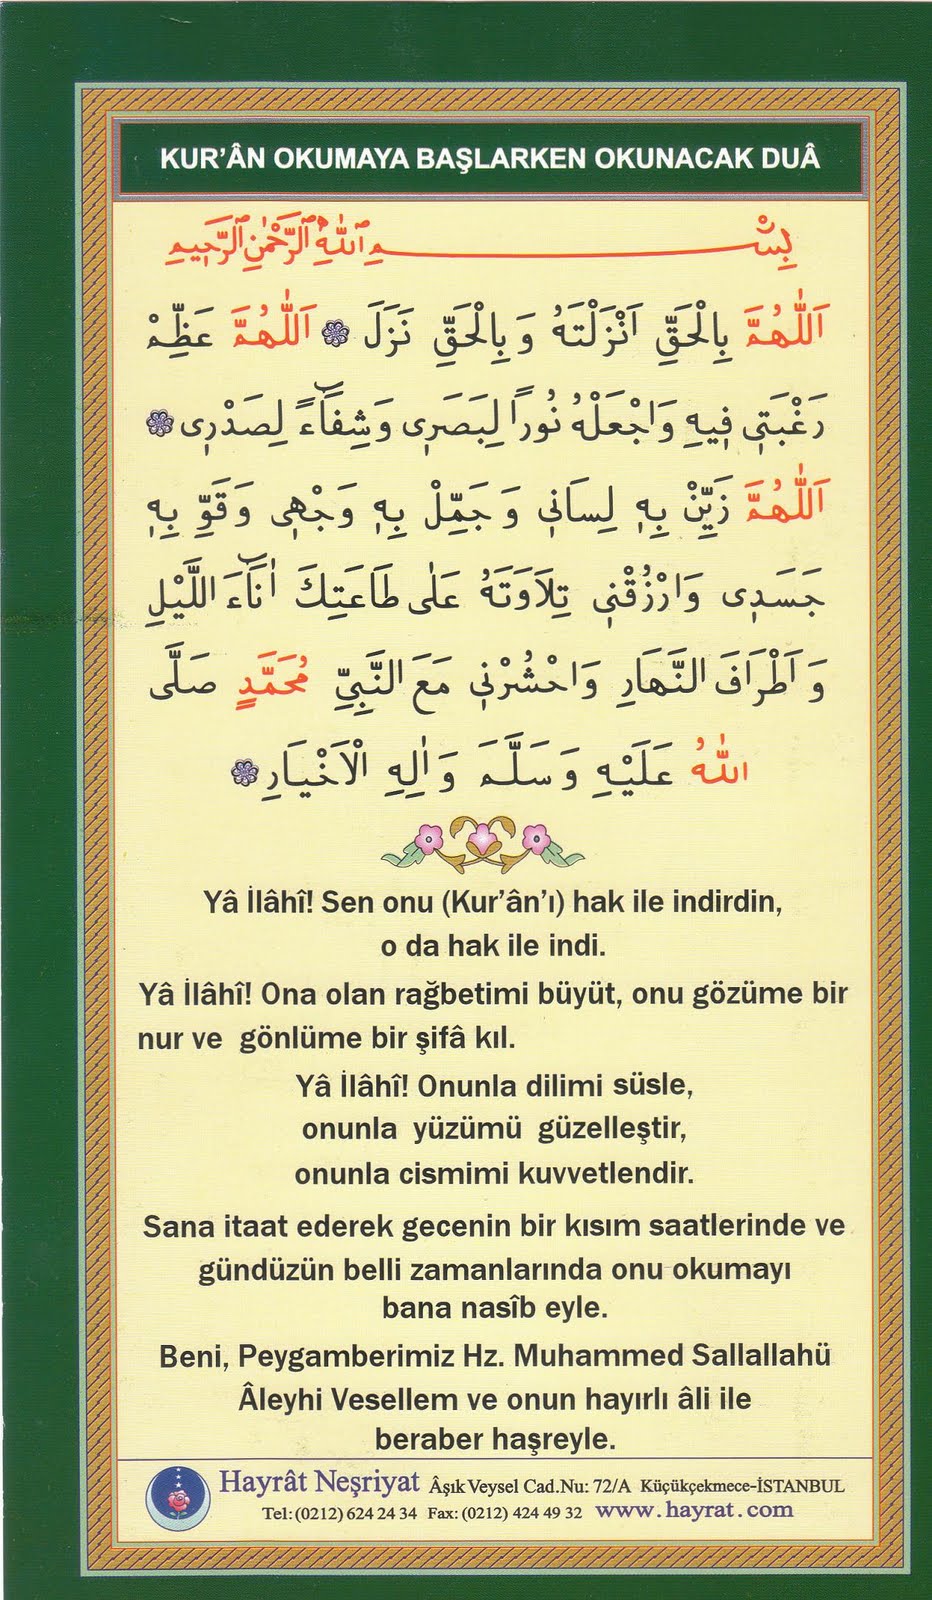 KUR’ÂN OKUMAYA BAŞLARKEN OKUNACAK DUÂ
بِسْمِ اللّٰهِ الرَّحْمٰنِ الرَّحِيمِ
اَللّٰهُمَّ بِالْحَقِّ اَنْزَلْتَهُ وَبِالْحَقِّ نَزَلَ اَللّٰهُمَّ عَظِّمْ
رَغْبَتِي فِيهِ وَاجْعَلْهُ نُورًا لِبَصَرِى وَشِفَٓاءً لِصَدْرِى
اَللّٰهُمَّ زَيِّنْ بِهِ لِسَانِى وَجَمِّلْ بِهِ وَجْهِى وَقَوِّ بِهِ
جَسَدِى وَارْزُقْنِى تِلَاوَتَهُ عَلٰى طَاعَتِكَ اٰنَٓاءَ اللَّيْلِ
وَاَطْرَافَ النَّهَارِ وَاحْشُرْنِى مَعَ النَّبِىِّ مُحَمَّدٍ صَلَّى
اللّٰهُ عَلَيْهِ وَسَلَّمَ وَاٰلِهِ الْاَخْيَارِ
Yâ İlâhî! Sen onu (Kur’ân’ı) hak ile indirdin,
o da hak ile indi.
Yâ İlâhî! Ona olan rağbetimi büyüt, onu gözüme bir
nur ve gönlüme bir şifâ kıl.
Yâ İlâhî! Onunla dilimi süsle,
onunla yüzümü güzelleştir,
onunla cismimi kuvvetlendir.
Sana itaat ederek gecenin bir kısım saatlerinde ve
gündüzün belli zamanlarında onu okumayı
bana nasîb eyle.
Beni, Peygamberimiz Hz. Muhammed Sallallahü
Âleyhi Vesellem ve onun hayırlı âli ile
beraber haşreyle.
Hayrât Neşriyat Âşık Veysel Cad.Nu: 72/A Küçükçekmece-İSTANBUL
Tel:(0212) 624 24 34 Fax:(0212) 424 49 32 www.hayrat.com